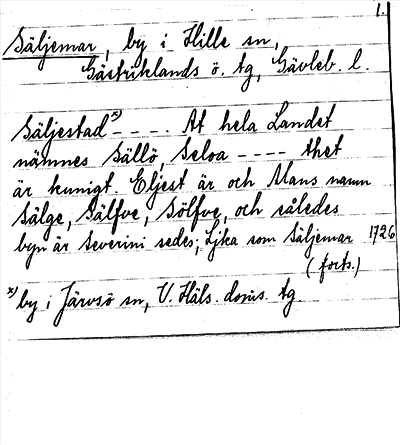 1.
Säljemar, by i Hille sn,
Gästriklands ö. tg, Gävleb. l.
Säljestad x) - - - . At hela Landet
nämnes Sällö, Seloa - - - - thet
är kunigt. Eljest är och Mans namn
Sälge, Sälfve, Sölfve, och således
byn är Severini sedes; Ljka som Säljemar 1726
(forts.)
x) by i Järvsö sn, V. Häls. doms. tg